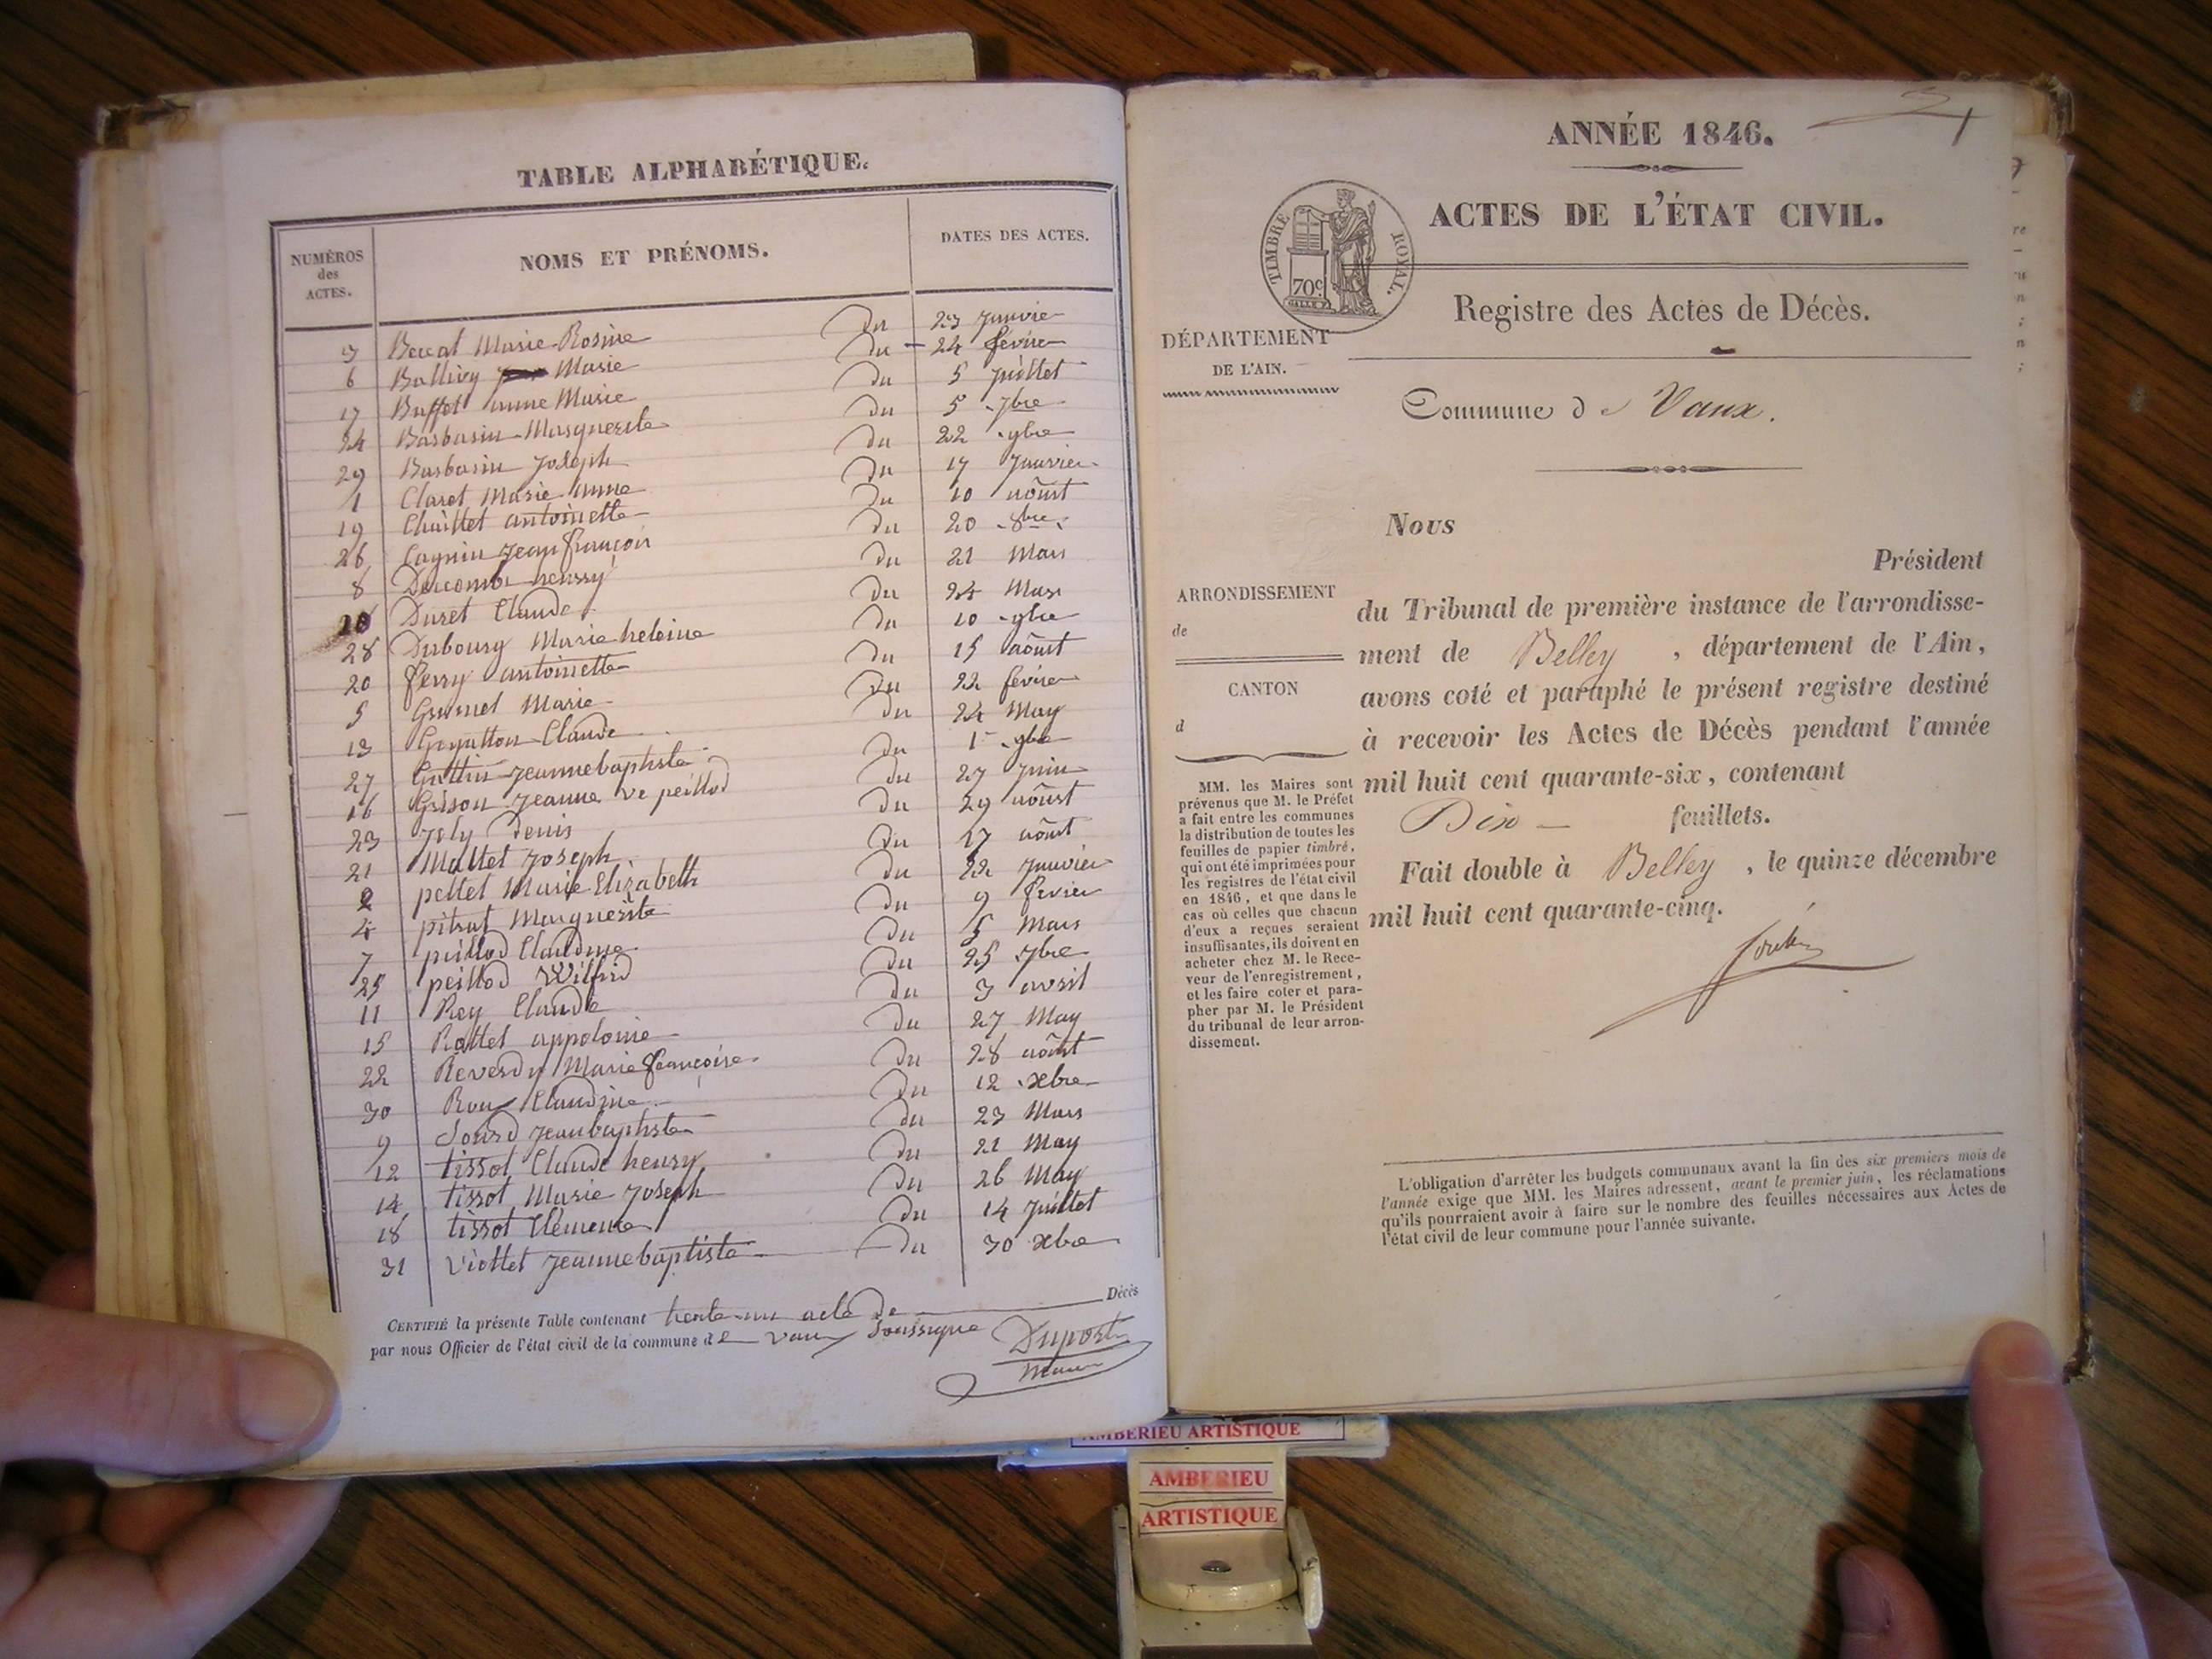 TABLE ALPHABÉTIQUE.
NUMÉROS des ACTES.
NOMS ET PRÉNOMS.
DATES DES ACTES.
3 Beccat Marie-Rosine du 23 Janvier
6 Ballivy Marie du 24 fevrier
17 Buffet anne Marie du 5 juillet
24 Barbarin Marguerite du 5 7bre
29 Barbarin Joseph du 22 9bre
1 Claret Marie anne du 17 Janvier
19 Chaillet antoinette du 10 aôust
26 Cagnin Jean françois du 20 8bre
8 henry du 21 Mars
10 Duret Claude du 24 Mars
28 Dubourg Marie heloine du 10 9bre
20 ferry antoinette du 15 aôust
5 Grumet Marie du 22 fevrier
13 Claude du 24 May
27 Jeannebaptiste du 1er 9bre
16 Grison Jeanne ve peillod du 27 Juin
23 Joly Denis du 29 aôust
21 Mallet Joseph du 17 aôust
2 pellet Marie Elizabeth du 22 Janvier
4 pitrat Marguerite du 9 fevrier
7 peillod Claudine du 5 Mars
25 peillod Wilfrid du 25 7bre
11 Rey Claude du 3 avril
15 Rattet appolonie du 27 May
22 Reverdy Marie françoise du 28 aôust
30 Roux Claudine du 12 xbre
9 Sourd Jeanbaptiste du 23 Mars
12 tissot Claude henry du 21 May
14 tissot Marie Joseph du 26 May
18 tissot Clémence du 14 Juillet
31 Viollet Jeannebaptiste du 30 xbre
CERTIFIÉ la présente Table contenant trente-un acte de Décès
par nous Officier de l'état civil de la commune de vaux Soussigné Duport
maire
ANNÉE 1846.
ACTES DE L'ÉTAT CIVIL.
TIMBRE ROYAL.
70c
Registre des Actes de Décès.
DÉPARTEMENT
DE L'AIN.
Commune de Vaux.
Nous
Président
ARRONDISSEMENT
de
CANTON
d
du Tribunal de première instance de l'arrondisse-
ment de Belley, département de l'Ain,
avons coté et paraphé le présent registre destiné
à recevoir les Actes de Décès pendant l'année
mil huit cent quarante-six, contenant
Dix feuillets.
Fait double à Belley, le quinze décembre
mil huit cent quarante-cinq.
MM. les Maires sont
prévenus que M. le Préfet
a fait entre les communes
la distribution de toutes les
feuilles de papier timbré,
qui ont été imprimées pour
les registres de l'état civil
en 1846, et que dans le
cas où celles que chacun
d'eux a reçues seraient
insuffisantes, ils doivent en
acheter chez M. le Rece-
veur de l'enregistrement,
et les faire coter et para-
pher par M. le Président
du tribunal de leur arron-
dissement.
L'obligation d'arrêter les budgets communaux avant la fin des six premiers mois de
l'année exige que MM. les Maires adressent, avant le premier juin, les réclamations
qu'ils pourraient avoir à faire sur le nombre des feuilles nécessaires aux Actes de
l'état civil de leur commune pour l'année suivante.
AMBERIEU ARTISTIQUE
AMBERIEU
ARTISTIQUE